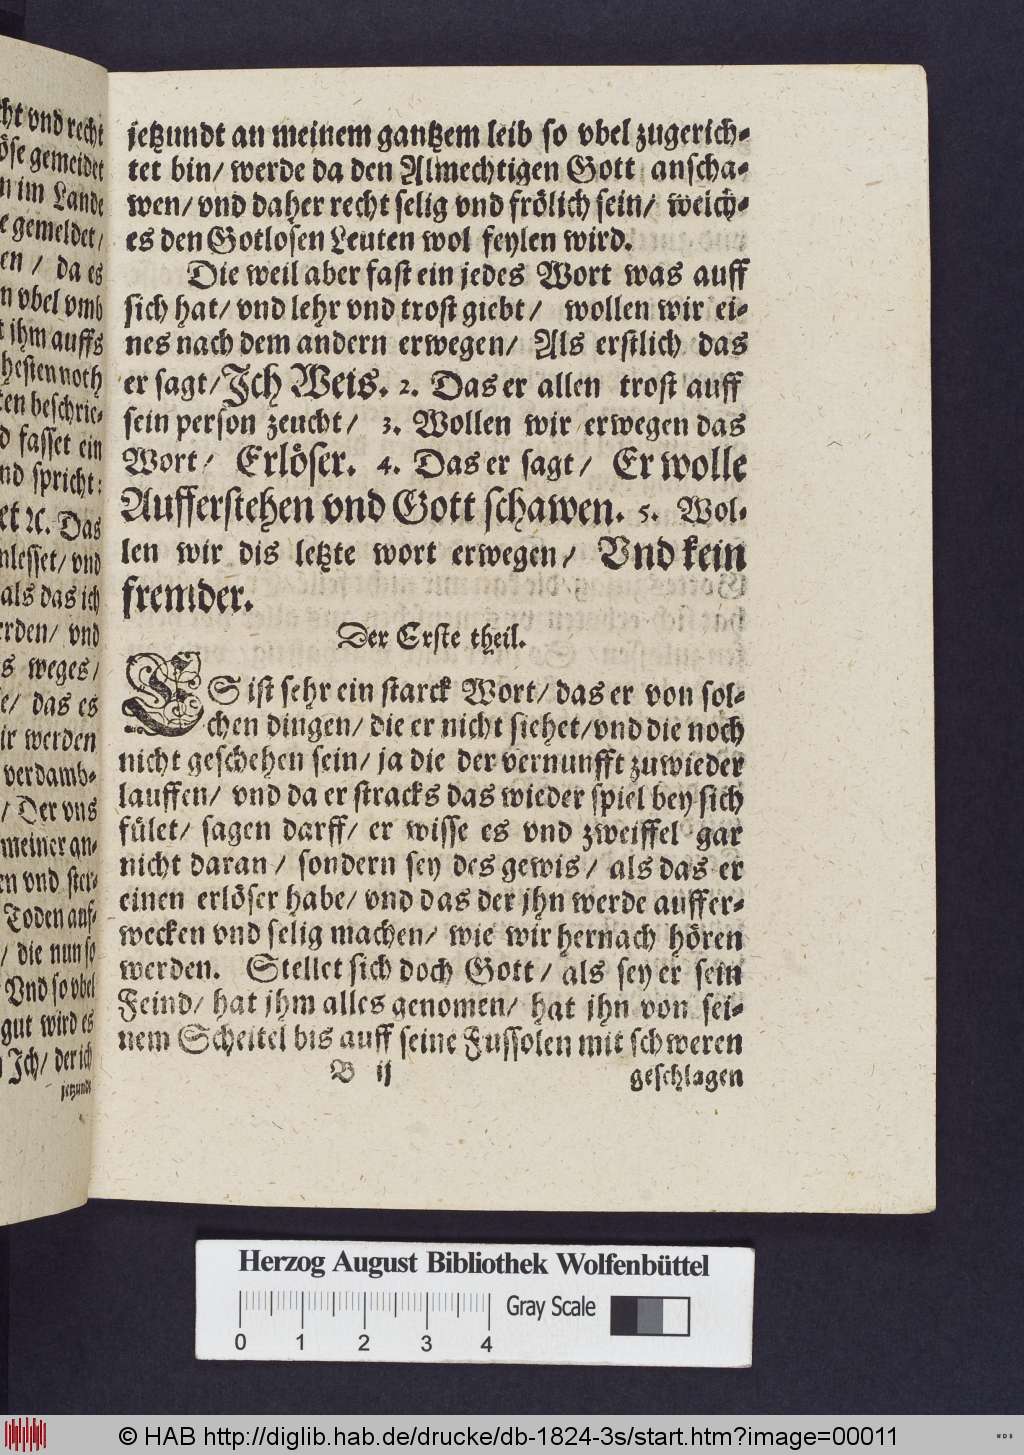 cht vnd recht
öse gemeidet
n im Lande
e gemeldet/
en / da es
n vbel vmb
t jhm auffs
hesten noth
ten beschrie-
d fasset ein
nd spricht:
et ꝛc. Das
nlesset/ vnd
als das ich
erden/ vnd
s weges/
e/ das es
ir werden
verdamb-
/ Der vns
meiner an-
en vnd ster-
Toden auf-
/ die nun so
Vnd so vbel
gut wird es
Jch/ der ich
jetzundt
jetzundt an meinem gantzem leib so vbel zugerich-
tet bin/ werde da den Almechtigen Gott anscha-
wen/ vnd daher recht selig vnd frölich sein/ welch-
es den Gotlosen Leuten wol feylen wird.
Die weil aber fast ein jedes Wort was auff
sich hat/ vnd lehr vnd trost giebt/ wollen wir ei-
nes nach dem andern erwegen/ Als erstlich das
er sagt/ Jch Weis. 2. Das er allen trost auff
sein person zeucht/ 3. Wollen wir erwegen das
Wort/ Erlöser. 4. Das er sagt/ Er wolle
Aufferstehen vnd Gott schawen. 5. Wol-
len wir dis letzte wort erwegen/ Vnd kein
fremder.
Der Erste theil.
ES ist sehr ein starck Wort/ das er von sol-
chen dingen/ die er nicht siehet/ vnd die noch
nicht geschehen sein/ ja die der vernunfft zuwieder
lauffen/ vnd da er stracks das wieder spiel bey sich
fület/ sagen darff/ er wisse es vnd zweiffel gar
nicht daran/ sondern sey des gewis/ als das er
einen erlöser habe/ vnd das der jhn werde auffer-
wecken vnd selig machen/ wie wir hernach hören
werden. Stellet sich doch Gott/ als sey er sein
Feind/ hat jhm alles genomen/ hat jhn von sei-
nem Scheitel bis auff seine Fussolen mit schweren
B ij geschlagen
Herzog August Bibliothek Wolfenbüttel
Gray Scale
0 1 2 3 4
© HAB http://diglib.hab.de/drucke/db-1824-3s/start.htm?image=00011